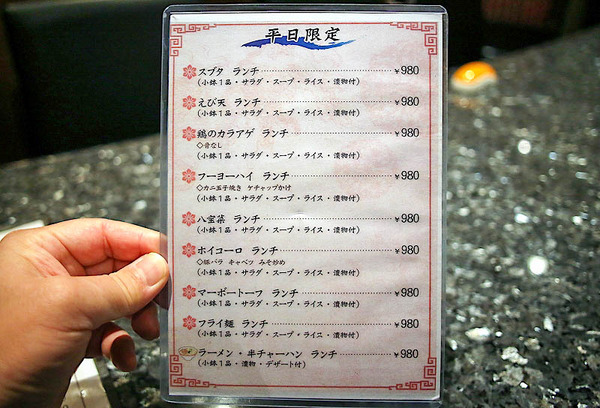 平日限定
スブタ ランチ……………¥980
(小鉢1品・サラダ・スープ・ライス・漬物付)
えび天 ランチ……………¥980
(小鉢1品・サラダ・スープ・ライス・漬物付)
鶏のカラアゲ ランチ……………¥980
◇骨なし
(小鉢1品・サラダ・スープ・ライス・漬物付)
フーヨーハイ ランチ……………¥980
◇カニ玉子焼き ケチャップかけ
(小鉢1品・サラダ・スープ・ライス・漬物付)
八宝菜 ランチ……………¥980
(小鉢1品・サラダ・スープ・ライス・漬物付)
ホイコーロ ランチ……………¥980
◇豚バラ キャベツ みそ炒め
(小鉢1品・サラダ・スープ・ライス・漬物付)
マーボートーフ ランチ……………¥980
(小鉢1品・サラダ・スープ・ライス・漬物付)
フライ麺 ランチ……………¥980
(小鉢1品・サラダ・スープ・ライス・漬物付)
ラーメン・半チャーハン ランチ……………¥980
(小鉢1品・漬物・デザート付)